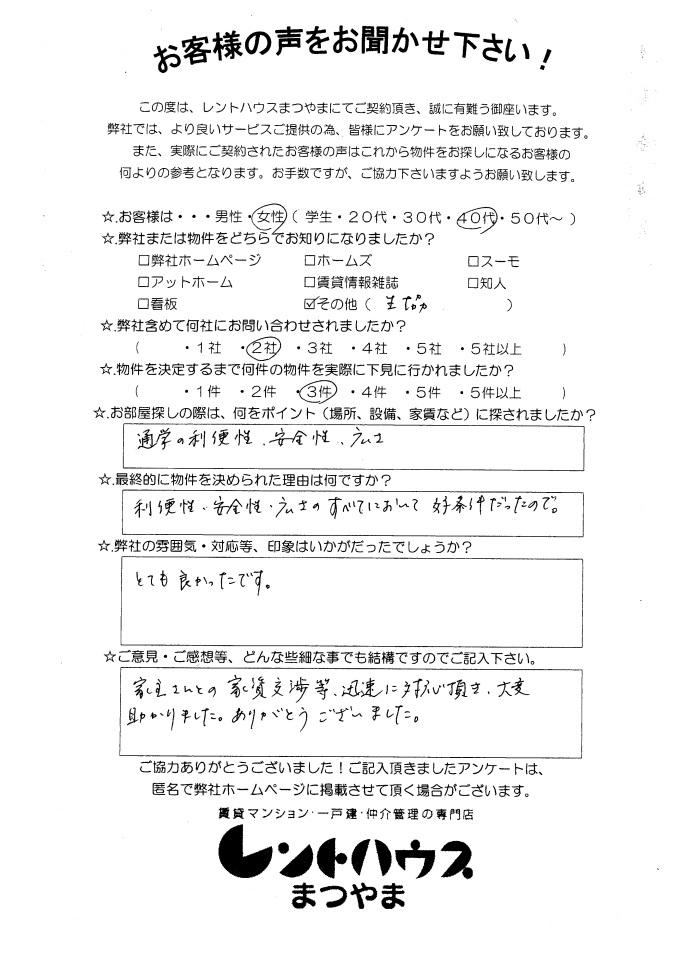 お客様の声をお聞かせ下さい！
この度は、レントハウスまつやまにてご契約頂き、誠に有難う御座います。
弊社では、より良いサービスご提供の為、皆様にアンケートをお願い致しております。
また、実際にご契約されたお客様の声はこれから物件をお探しになるお客様の
何よりの参考となります。お手数ですが、ご協力下さいますようお願い致します。
☆.お客様は・・・男性・女性（ 学生・２０代・３０代・４０代・５０代～ ）
☆.弊社または物件をどちらでお知りになりましたか？
□弊社ホームページ □ホームズ □スーモ
□アットホーム □賃貸情報雑誌 □知人
□看板 ☑その他（ 生協 ）
☆.弊社含めて何社にお問い合わせされましたか？
（ ・１社 ・２社 ・３社 ・４社 ・５社 ・５社以上 ）
☆.物件を決定するまで何件の物件を実際に下見に行かれましたか？
（ ・１件 ・２件 ・３件 ・４件 ・５件 ・５件以上 ）
☆.お部屋探しの際は、何をポイント（場所、設備、家賃など）に探されましたか？
通学の利便性、安全性、広さ
☆.最終的に物件を決められた理由は何ですか？
利便性・安全性・広さのすべてにおいて 好条件だったので。
☆.弊社の雰囲気・対応等、印象はいかがだったでしょうか？
とても良かったです。
☆ご意見・ご感想等、どんな些細な事でも結構ですのでご記入下さい。
家主さんとの家賃交渉等、迅速に対応頂き、大変
助かりました。ありがとうございました。
ご協力ありがとうございました！ご記入頂きましたアンケートは、
匿名で弊社ホームページに掲載させて頂く場合がございます。
賃貸マンション・一戸建・仲介管理の専門店
レントハウス
まつやま